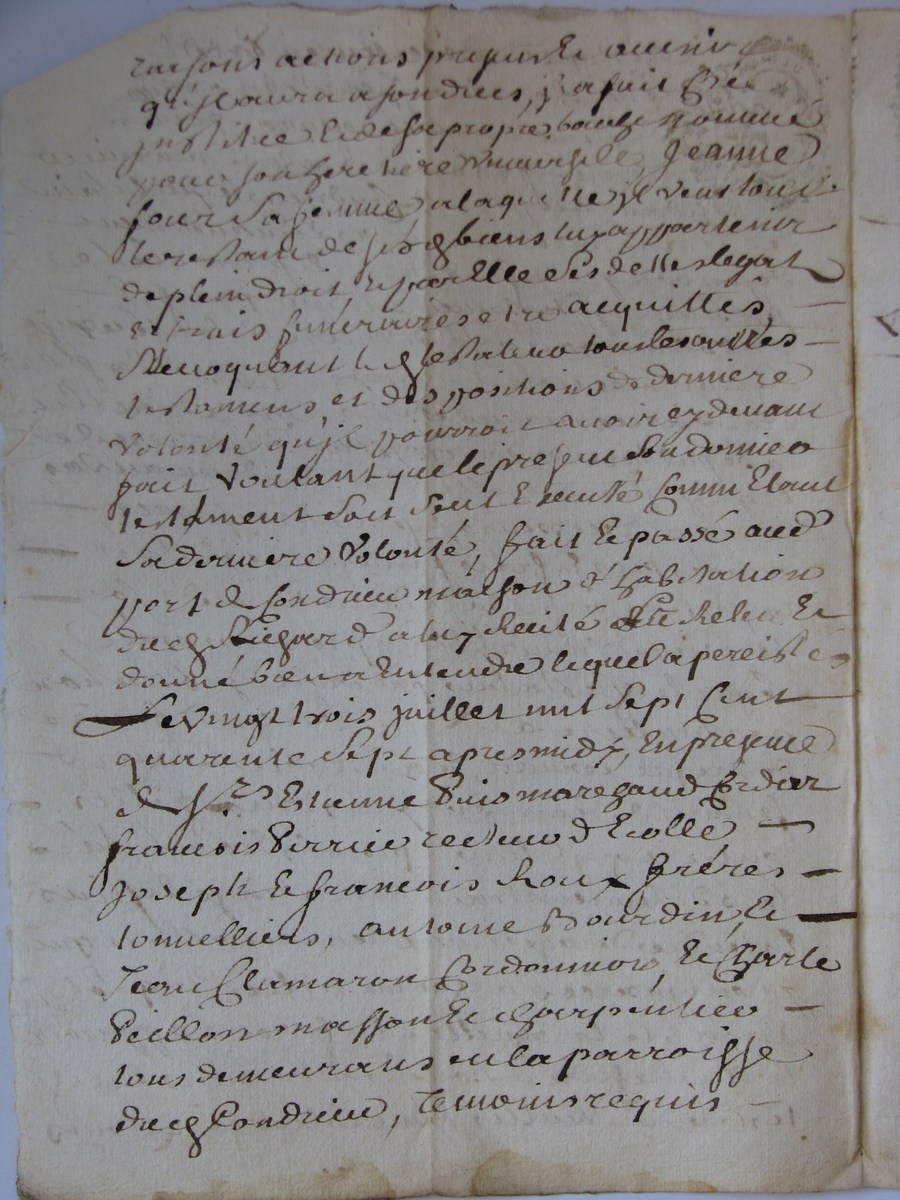 raisons actions presens et avenir
qu'jl aura a fondrees, jl a fait Créé
jnstitue et de sa propre bouche nommé
pour son heretiere universelle Jeanne
four Sa femme a laquelle jl veut tout
le restant de sesd biens luy appartenir
de plein droit, et par Elle Ses dettes legat
et frais funeraires etre acquittés,
Revoquant led testateur tous les autres
testamens et dispositions de derniere
volonté qu'jl pourroit avoir cy devant
fait voulant que le present Son dernier
testament soit seul Executé Comme Etant
Sa derniere volonté, fait et passé aud
port de Condrieu maison d'habitation
dud a luy Recité Releu Et
donné bien a Entendre lequel a percisté
Le vingt trois juillet mil sept Cent
quarente sept apres midy, En presence
de Srs Etienne Puis maregaud Cordier
francois Perrier recteur d'Ecolle
Joseph et francois Roux freres
tonnelliers, antoine Bourdin, et
Jean Clamaron Cordonnier, et Charle
Peillon masson et charpentier
tous demeurans en la parroisse
dud Condrieu, temoins requis